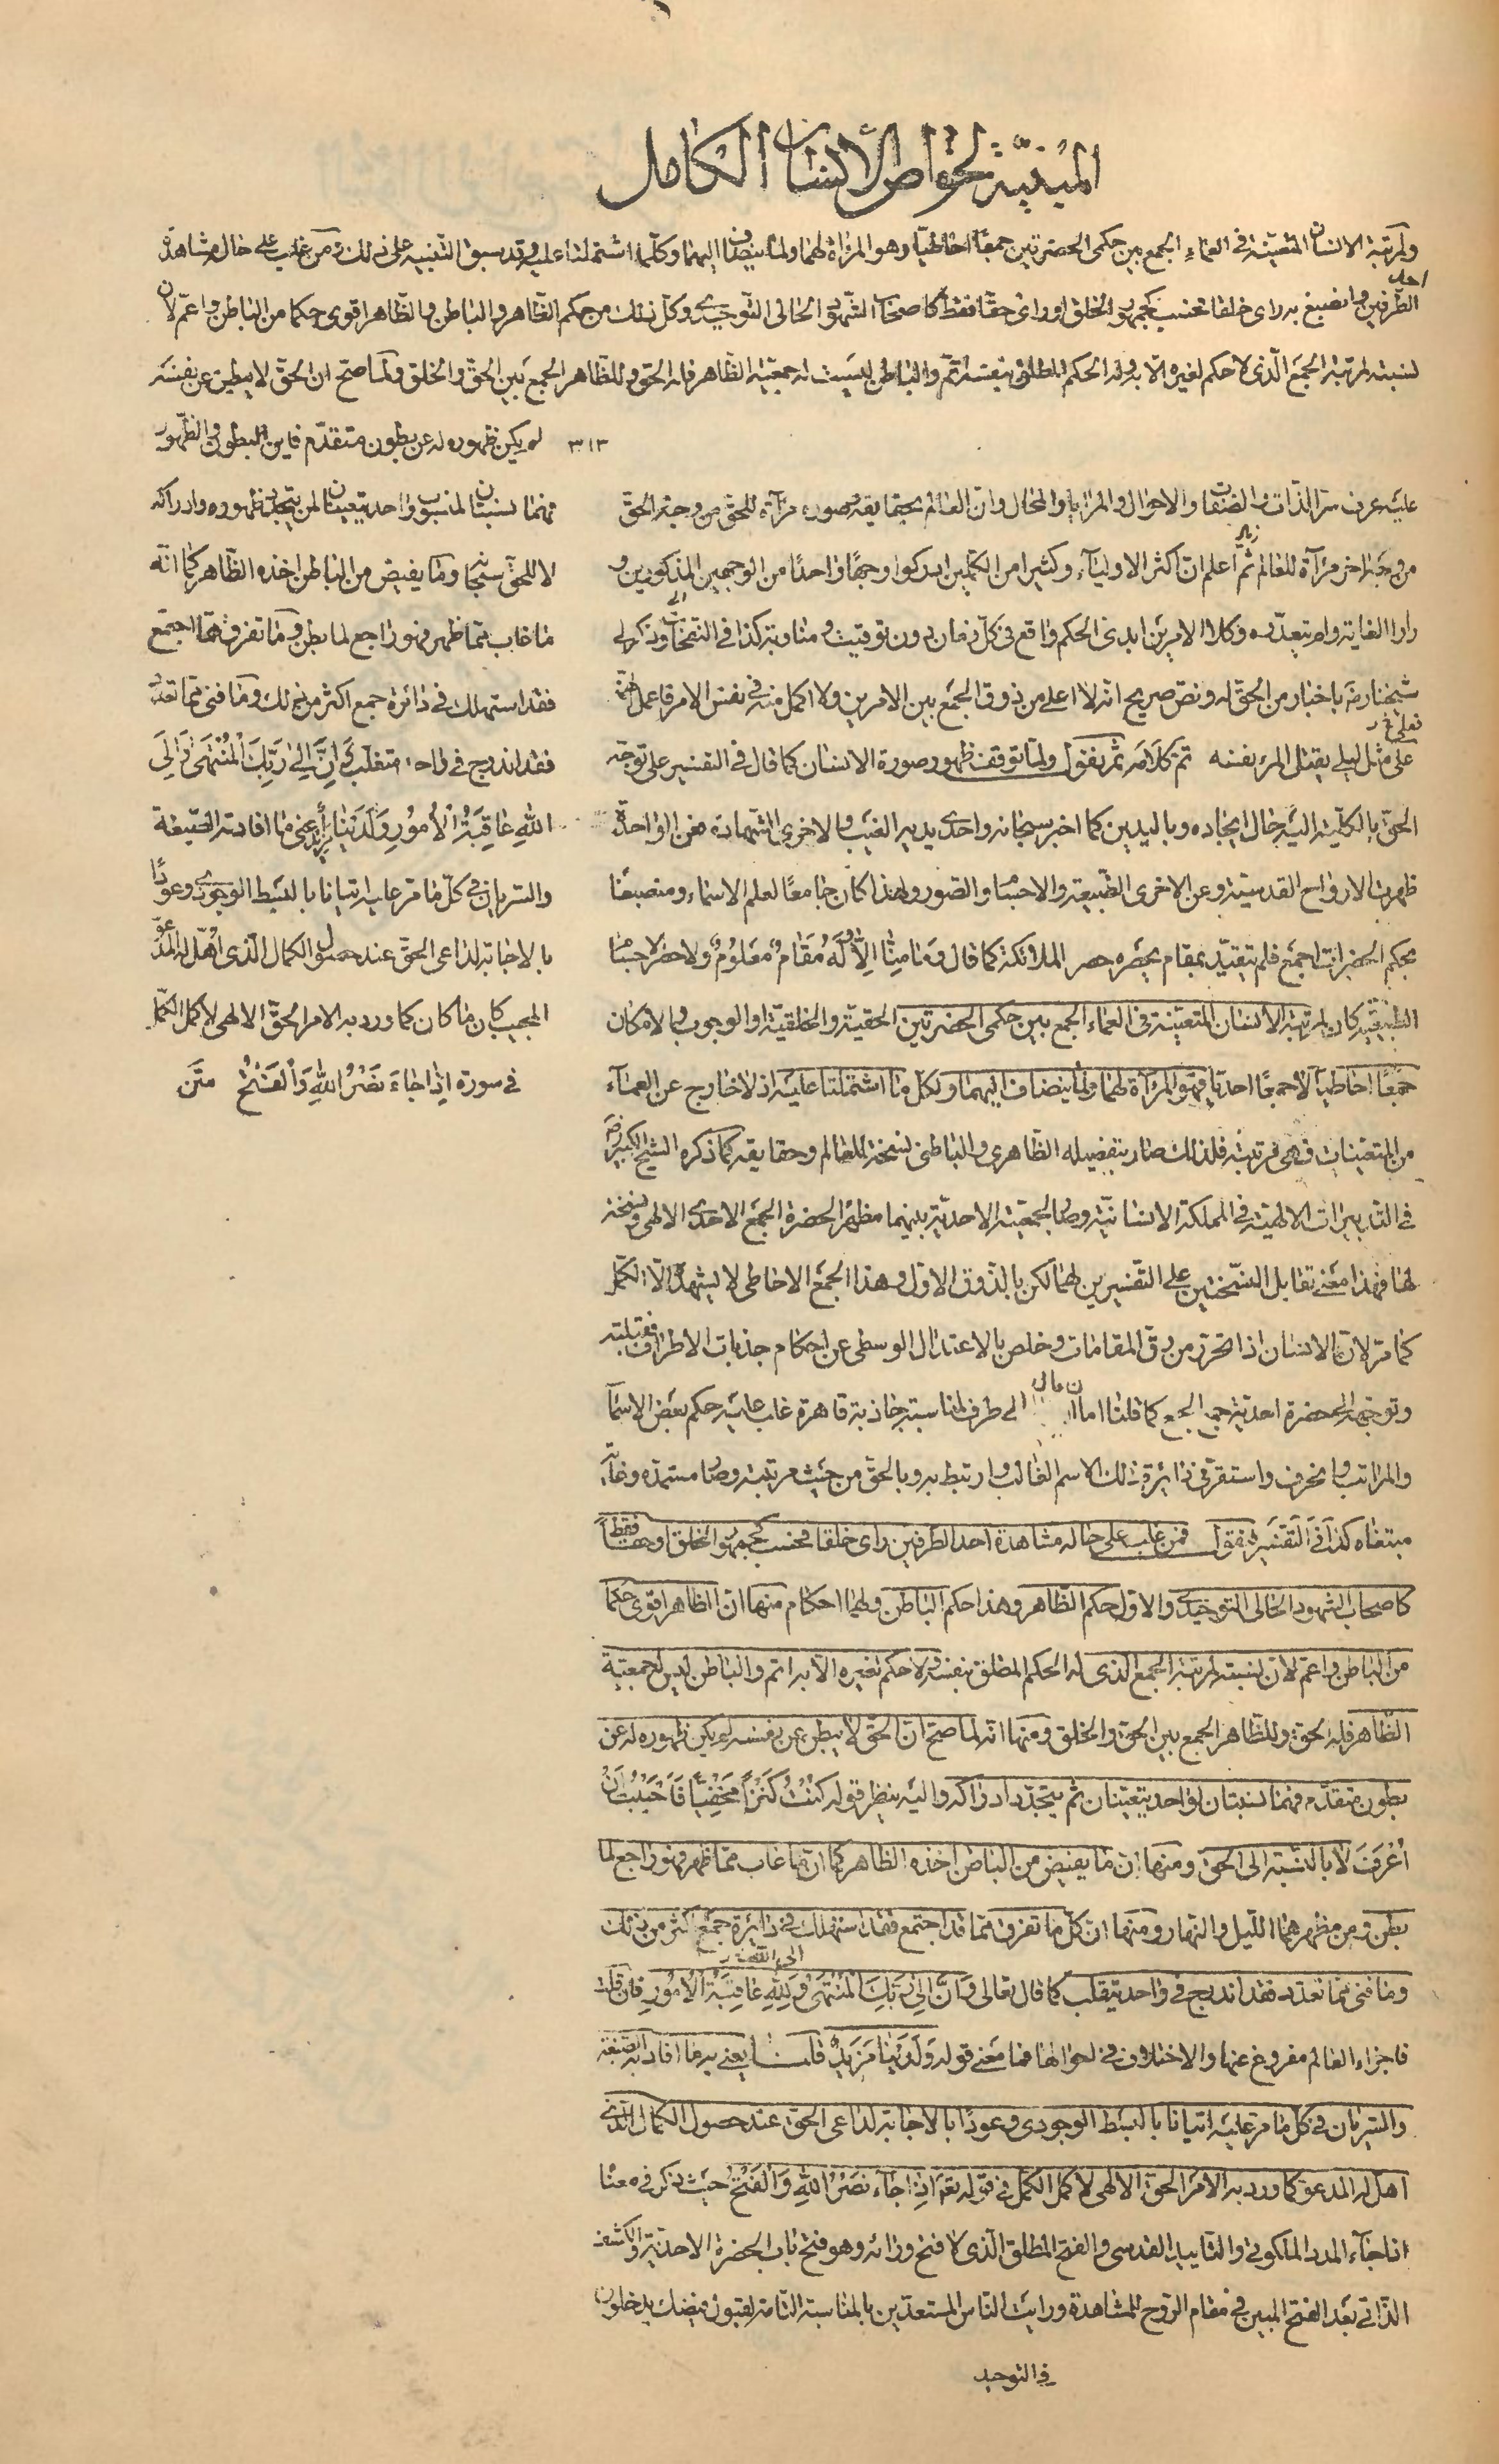 المبنية لخواص الانسان الكامل
ولمرتبة الانسان المتعينة في العماء الجمع بين حكمى الحضرتين جمعا احاطيا وهو المرآة لهما ولما ينضاف اليهما وكلما اشتملتا عليه وقد سبق التنبيه على ذلك فمن غلب على حال مشاهدة
احد
الطرفين وانصبغ به راى خلقا فحسب كجمهور الخلق او راى حقا فقط كاصحاب الشهود الحالى التوحيدى وكل ذلك من حكم الظاهر والباطن والظاهر اقوى حكما من الباطن واعم لان
نسبته لمرتبة الجمع الذى لا حكم لغيره الا به وله الحكم المطلق بنفسه اتم والباطن ليست له جمعية الظاهر فله الحق وللظاهر الجمع بين الحق والخلق ولما صح ان الحق لا يبطن عن نفسه
٣١٣ لم يكن ظهوره له عن بطون متقدم فاين البطون والظهور
فهما نسبتان لمنسوب واحد يتعينان لمن يتجدد ظهوره وادراكه
لا للحق سبحانه وما يفيض من الباطن اخذه الظاهر كما انه
ما غاب مما ظهر فهو راجع لما بطن وما تفرق مما اجتمع
فقد استهلك في دائرة جمع اكثر من ذلك وما فنى مما تعدد
فقد اندرج في واحد متقلب وَاَنَّ اِلى رَبِّكَ الْمُنْتَهى وَاِلَى
اللهِ عَاقِبَةُ الْاُمُورِ وَلَدَيْنَا مَزِيدٌ اعنى ما افادته الصيغة
والسريان في كل ما مر عليه اتيانا بالبسط الوجودى وعودًا
بالاجابة لداعى الحق عند حصول الكمال الذى اُهِّلَ له المدعو
المجيب كان ما كان كما ورد به الامر الحق الالهى لاكمل الكمل
في سورة اِذَا جَاءَ نَصْرُ اللهِ وَالْفَتْحُ متن
عليه عرف سر الذات والصفات والاحوال والمرايا والمحال وان العالم بحقايقه وصوره مرآة للحق من وجه والحق
من وجه اخر مرآة للعالم ثم اعلم ان اكثر الاولياء وكثيرا من الكملين ادركوا وجها واحدا من الوجهين المذكورين و
راوا الغاية ولم يتعدوه وكلا الامرين ابدى الحكم واقع في كل زمان بدون توقيت ومناوبة كذا في النفحات وذكر لى
شيخنا رضه باخبار من الحق له ونص صريح انه لا اعلى من ذوق الجمع بين الامرين ولا اكمل منه في نفس الامر فاعمل
على مثل ليلى يقتل المرء نفسه تم كلامه ثم نقول ولما توقف ظهور صورة الانسان كما قال في التفسير على توجه
الحق بالكلية اليه حال ايجاده وباليدين كما اخبر سبحانه واحدى يديه الغيب والاخرى الشهادة فعن الواحدة
ظهرت الارواح القدسية وعن الاخرى الطبيعة والاجسام والصور ولهذا كان جامعا لعلم الاسماء ومنصبغا
بحكم الحضرات اجمع فلم يتقيد بمقام يحصره حصر الملائكة كما قال وَمَا مِنَّا اِلَّا لَهُ مَقَامٌ مَعْلُومٌ ولا حصر الاجسام
الطبيعية كان لمرتبة الانسان المتعينة في العماء الجمع بين حكمى الحضرتين الحقية والخلقية او الوجوب والامكان
جمعًا احاطيا لا جمعًا احديا فهو المرآة لهما ولما ينضاف اليهما ولكل ما اشتملتا عليه اذ لا خارج عن العماء
من المتعينات فهى مرتبته فلذلك صار بتفصيله الظاهرى والباطنى نسخة للعالم وحقايقه كما ذكره الشيخ الكبير رضه
في التدبيرات الالهية في المملكة الانسانية وصار بالجمعية الاحدية بينهما مظهر الحضرة الجمع الاحدى الالهى ونسخة
لها فهذا معنى تقابل النسختين على التفسيرين لهما لكن بالذوق الاول وهذا الجمع الاحاطى لا يشهده الا الكمل
كما مر لان الانسان اذا تحرر من رق المقامات وخلص بالاعتدال الوسطى عن احكام جذبات الاطراف فقبلته
وتوجهه الحضرة احدية جمع الجمع كما قلنا اما ان مال الى طرف لمناسبة جاذبة قاهرة غلب عليه حكم بعض الاسماء
والمراتب وانحرف واستقر في دائرة ذلك الاسم الغالب وارتبط به وبالحق من حيث مرتبته وصار مستمده وغاية
مبتغاه كذا في التفسير فنقول فمن غلب على حاله مشاهدة احد الطرفين راى خلقا فحسب كجمهور الخلق او حقا فقط
كاصحاب الشهود الحالى التوحيدى والاول حكم الظاهر وهذا حكم الباطن ولهما احكام منها ان الظاهر اقوى حكما
من الباطن واعم لان نسبته لمرتبة الجمع الذى له الحكم المطلق بنفسه ولا حكم لغيره الا به اتم والباطن ليس له جمعية
الظاهر فله الحق وللظاهر الجمع بين الحق والخلق ومنها انه لما صح ان الحق لا يبطن عن نفسه لم يكن ظهوره له عن
بطون متقدم فهما نسبتان لواحد يتعينان ثم يتجدد ادراكه واليه ينظر قوله كُنْتُ كَنْزًا مَخْفِيًّا فَاَحْبَبْتُ اَنْ
اُعْرَفَ لا بالنسبة الى الحق ومنها ان ما يفيض من الباطن اخذه الظاهر كما ان ما غاب مما ظهر فهو راجع لما
بطن ومن مظهرهما الليل والنهار ومنها ان كل ما تفرق مما قد اجتمع فقد استهلك في دائرة جمع اكثر من ذلك
وما فنى مما تعدد فقد اندرج في واحد يتقلب كما قال تعالى وَاَنَّ اِلى رَبِّكَ الْمُنْتَهى وَلِلّهِ عَاقِبَةُ الْاُمُورِ فان قلت
فاجزاء العالم مفروغ عنها والاختلاف في احوالها فما معنى قوله وَلَدَيْنَا مَزِيدٌ قلنا يعنى به ما افادته الصيغة
والسريان في كل ما مر عليه اتيانا بالبسط الوجودى وعودًا بالاجابة لداعى الحق عند حصول الكمال الذى
اهل له المدعو كما ورد به الامر الحق الالهى لاكمل الكمل في قوله تعم اِذَا جَاءَ نَصْرُ اللهِ وَالْفَتْحُ حيث ذكر في معناه
اذا جاء المدد الملكوتى والتاييد القدسى والفتح المطلق الذى لا فتح ورائه وهو فتح باب الحضرة الاحدية والكشف
الذاتى بعد الفتح المبين في مقام الروح للمشاهدة ورايت الناس المستعدين بالمناسبة التامة لقبول فيضك يدخلون
في التوحيد